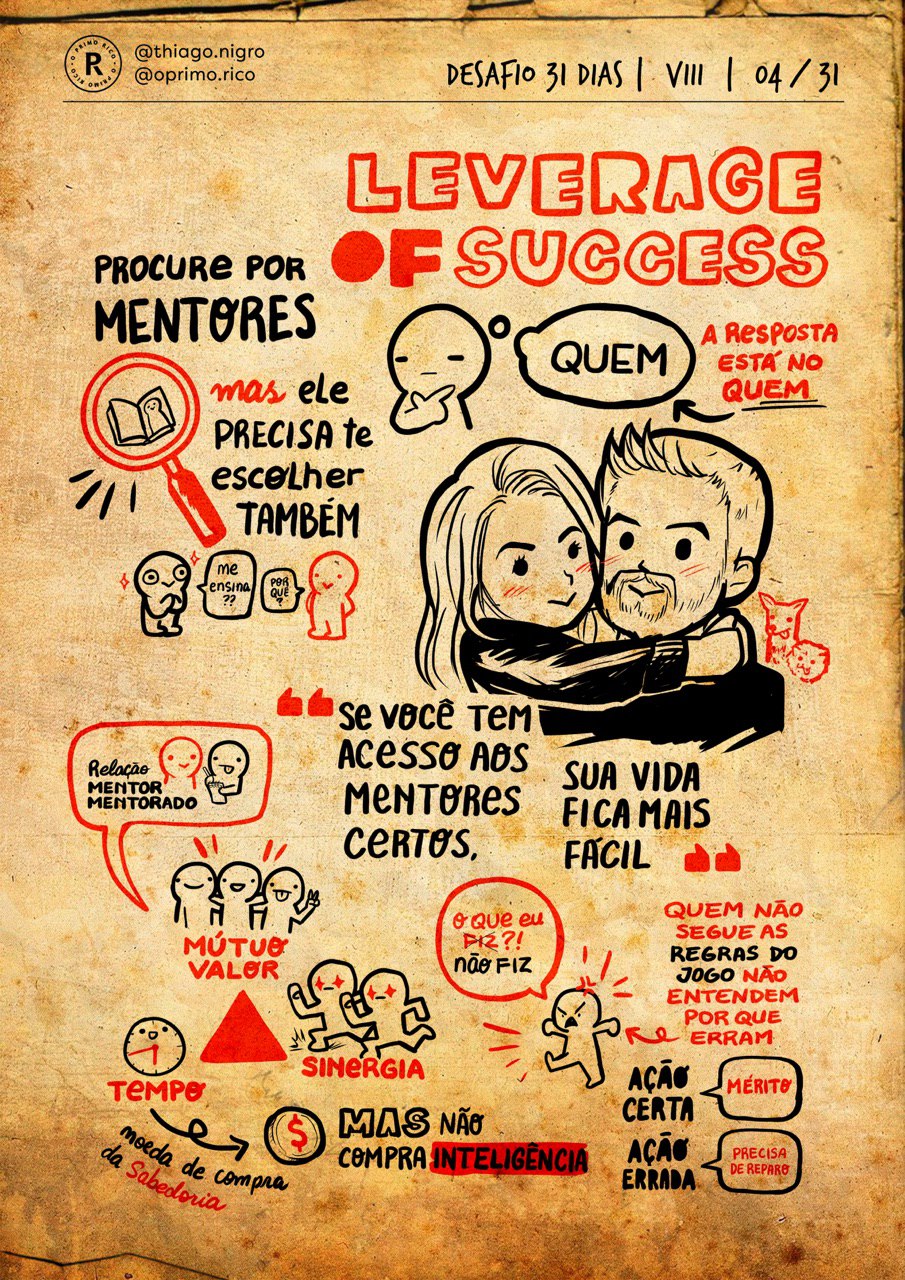 O PRIMO RICO • O PRIMO RICO •
R
@thiago.nigro
@oprimo.rico
DESAFIO 31 DIAS | VIII | 04 / 31
LEVERAGE
OF SUCCESS
PROCURE POR
MENTORES
mas ele
PRECISA te
escolher
TAMBÉM
QUEM
A RESPOSTA
ESTÁ NO
QUEM
me
ensina
??
POR
QUÊ
?
“
Se VOCÊ TEM
ACESSO AOS
MENTORES
CERTOS,
SUA VIDA
FICA MAIS
FÁCIL
”
Relação
MENTOR
MENTORADO
MÚTUO
VALOR
SINERGIA
TEMPO
moeda de compra
da Sabedoria
$
MAS NÃO
COMPRA INTELIGÊNCIA
O QUE EU
FIZ?!
NÃO FIZ
QUEM NÃO
SEGUE AS
REGRAS DO
JOGO NÃO
ENTENDEM
POR QUE
ERRAM
AÇÃO
CERTA
MÉRITO
AÇÃO
ERRADA
PRECISA
DE REPARO